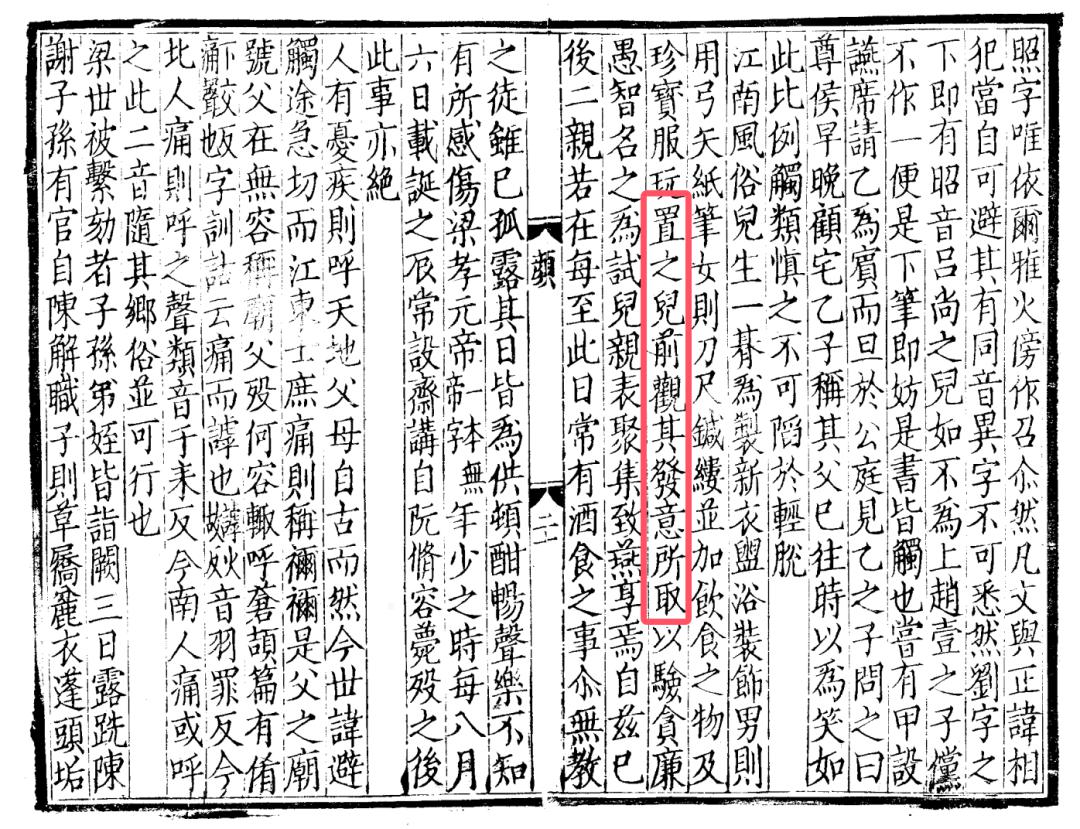 照字唯依爾雅火傍作召尒然凡文與正諱相
犯當自可避其有同音異字不可悉然劉字之
下即有昭音呂尚之兒如不為上趙壹之子儻
不作一便是下筆即妨是書皆觸也嘗有甲設
讌席請乙為賓而旦於公庭見乙之子問之曰
尊侯早晚顧宅乙子稱其父已往時以為笑如
此比例觸類慎之不可陷於輕脫
江南風俗兒生一朞為製新衣盥浴裝飾男則
用弓矢紙筆女則刀尺鍼縷並加飲食之物及
珍寶服玩置之兒前觀其發意所取以驗貪廉
愚智名之為試兒親表聚集致燕享焉自兹已
後二親若在每至此日常有酒食之事尒無教
二十
之徒雖已孤露其日皆為供頓酣暢聲樂不知
有所感傷梁孝元帝一本無帝字年少之時每八月
六日載誕之辰常設齋講自阮脩容薨歿之後
此事亦絶
人有憂疾則呼天地父母自古而然今世諱避
觸途急切而江東士庶痛則稱禰禰是父之廟
號父在無容稱廟父歿何容輒呼蒼頡篇有倄
字訓詁云痛而謼也音羽罪反今
北人痛則呼之聲類音于耒反今南人痛或呼
之此二音隨其鄉俗並可行也
梁世被繫劾者子孫弟姪皆詣闕三日露跣陳
謝子孫有官自陳解職子則草屩麤衣蓬頭垢